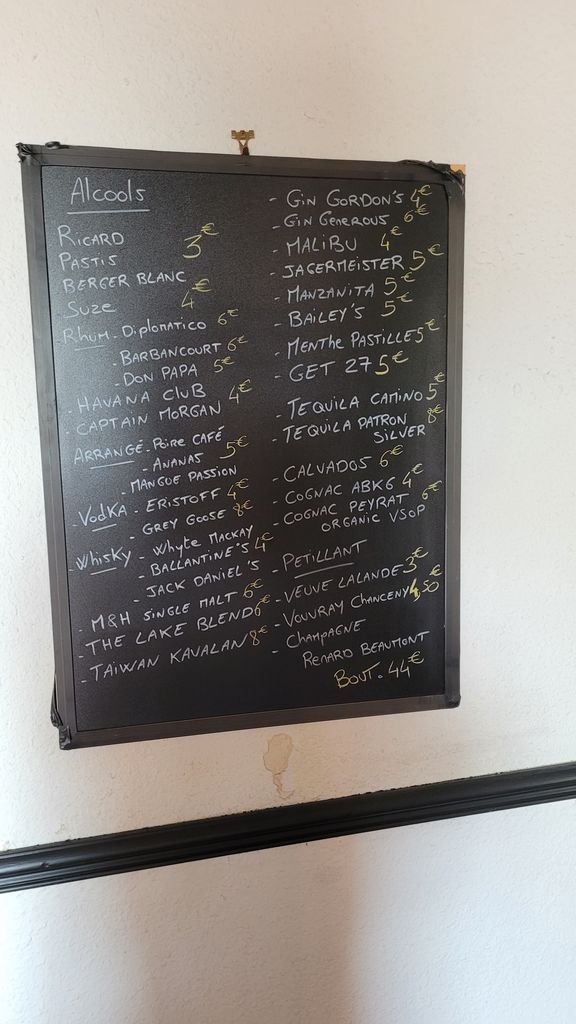 Alcools
RICARD
PASTIS 3€
BERGER BLANC
SUZE 4€
Rhum - Diplomatico 6€
- BARBANCOURT 6€
- DON PAPA 5€
- HAVANA CLUB
- CAPTAIN MORGAN 4€
ARRANGÉ - Poire CAFÉ
- ANANAS 5€
- MANGUE PASSION
- VODKA - ERISTOFF 4€
- GREY GOOSE 8€
- WHISKY - Whyte MACKAY
- BALLANTINE'S 4€
- JACK DANIEL'S
- M&H SINGLE MALT 6€
- THE LAKE BLEND 6€
- TAIWAN KAVALAN 8€
- GIN GORDON'S 4€
- GIN GENEROUS 6€
- MALIBU 4€
- JAGERMEISTER 5€
- MANZANITA 5€
- BAILEY'S 5€
- MENTHE PASTILLE 5€
- GET 27 5€
- TEQUILA CAMINO 5€
- TEQUILA PATRON 8€
SILVER
- CALVADOS 6€
- COGNAC ABK6 4€
- COGNAC PEYRAT 6€
ORGANIC VSOP
- PETILLANT
- VEUVE LALANDE 3€
- VOUVRAY CHANCENY 4,50€
- CHAMPAGNE
RENARD BEAUMONT
BOUT. 44€